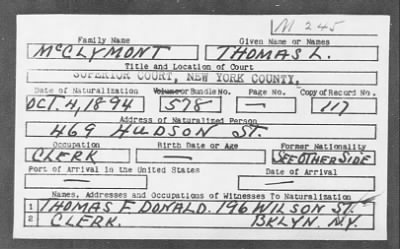 M 245
Family Name Given Name or Names
McCLYMONT THOMAS L.
Title and Location of Court
SUPERIOR COURT, NEW YORK COUNTY.
Date of Naturalization Volume or Bundle No. Page No. Copy of Record No.
OCT. 4, 1894 578 — 117
Address of Naturalized Person
469 HUDSON ST.
Occupation Birth Date or Age Former Nationality
CLERK — SEE OTHER SIDE
Port of Arrival in the United States Date of Arrival
— —
Names, Addresses and Occupations of Witnesses To Naturalization
1 THOMAS E DONALD. 196 WILSON ST.
2 CLERK. BKLYN. N.Y.